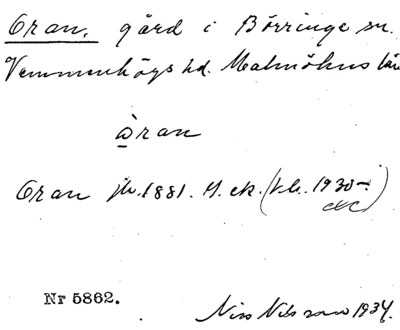 Oran, gård i Börringe sn.
Vemmenhögs hd. Malmöhus län
òran
Oran jb. 1881. H. ek. (kb. 1930 –
Nr 5862.
Nils Nilsson 1934.